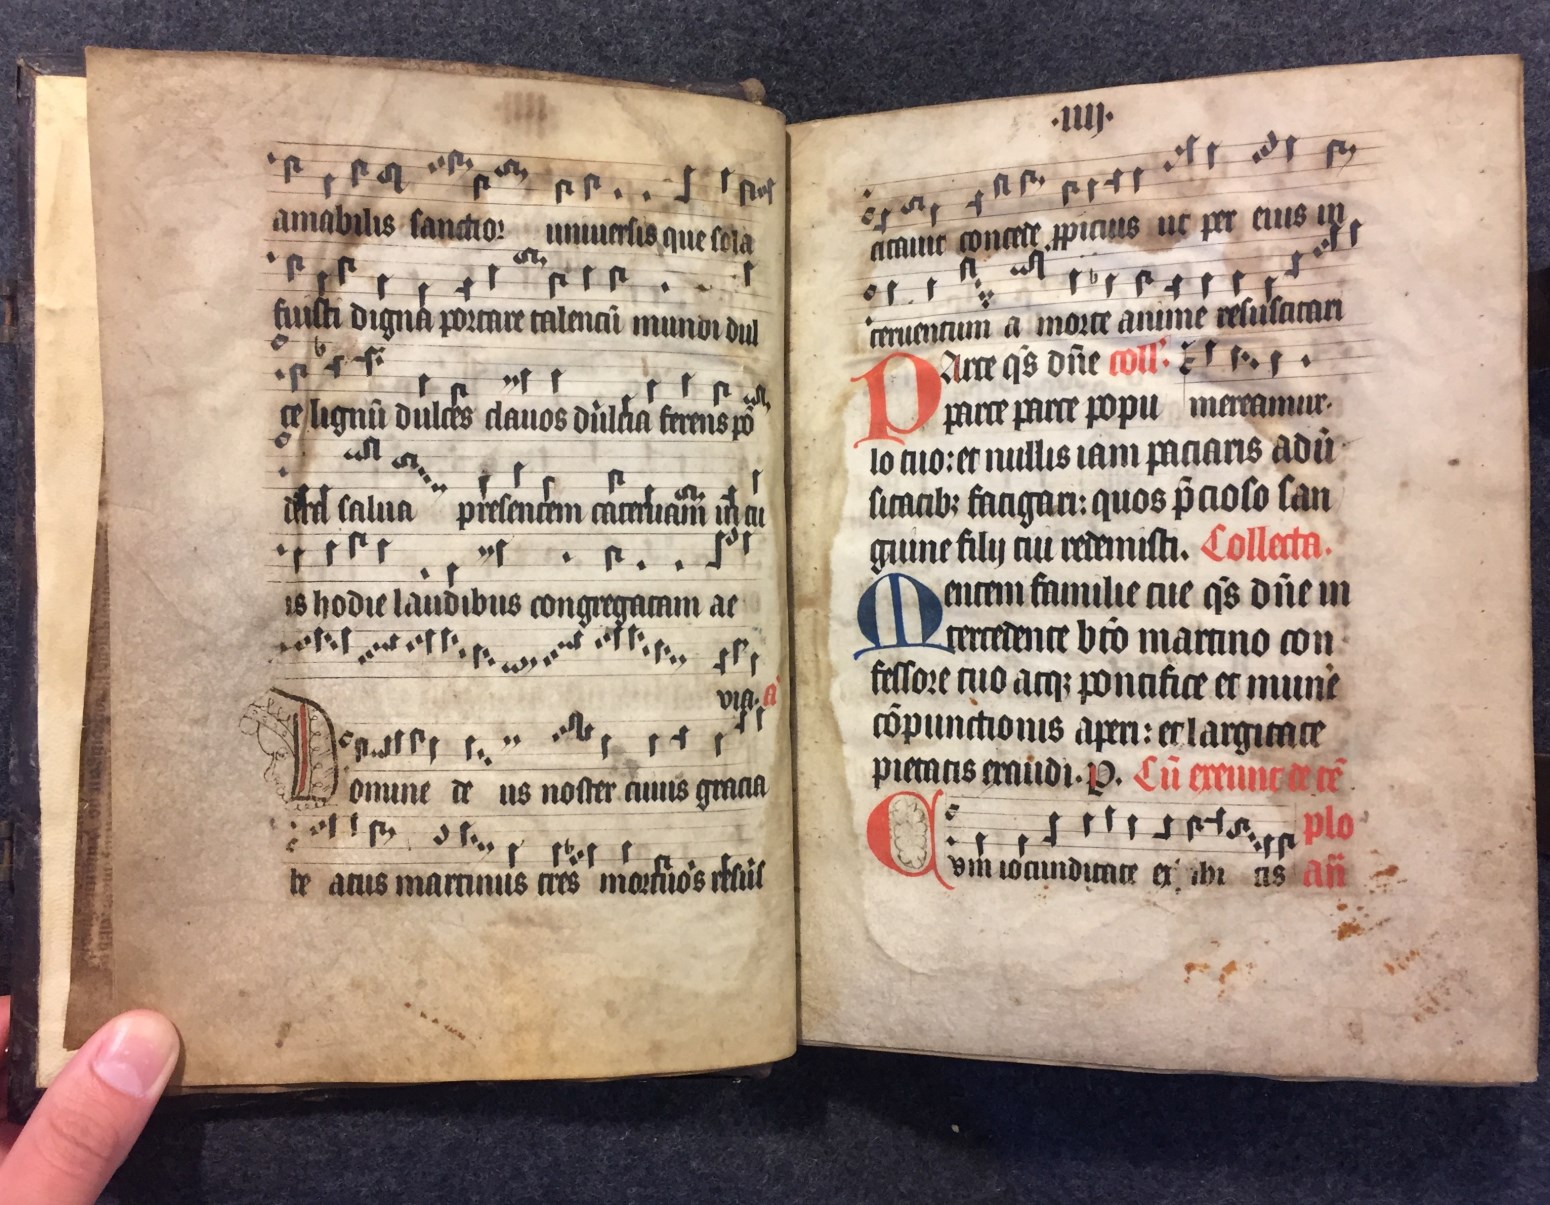 amabilis sanctior universis que sola
fuisti digna portare talentū mundi dul
ce lignū dulces clauos dulcia ferens pō
salua presentem cateruam in tu
is hodie laudibus congregatam ae
via. a
Domine de us noster cuius gracia
be atus martinus tres mortuos resus
.IIIJ.
citauit concede ꝓpicius ut per eius in
teruentum a morte anime resuscitari
PArce qs̄ dn̄e coll'.
parce parce popu mereamur.
lo tuo: et nullis iam paciaris adū
sitatibꝫ fatigari: quos p̄cioso san
guine filij tui redemisti. Collecta.
Mentem familie tue qs̄ dn̄e in
tercedente bt̄o martino con
fessore tuo atqꝫ pontifice et mune
cōpunctionis aperi: et largitate
pietatis exaudi. P. Cū exeunt de tē
plo
Cvm iocunditate ex ibi tis an̄